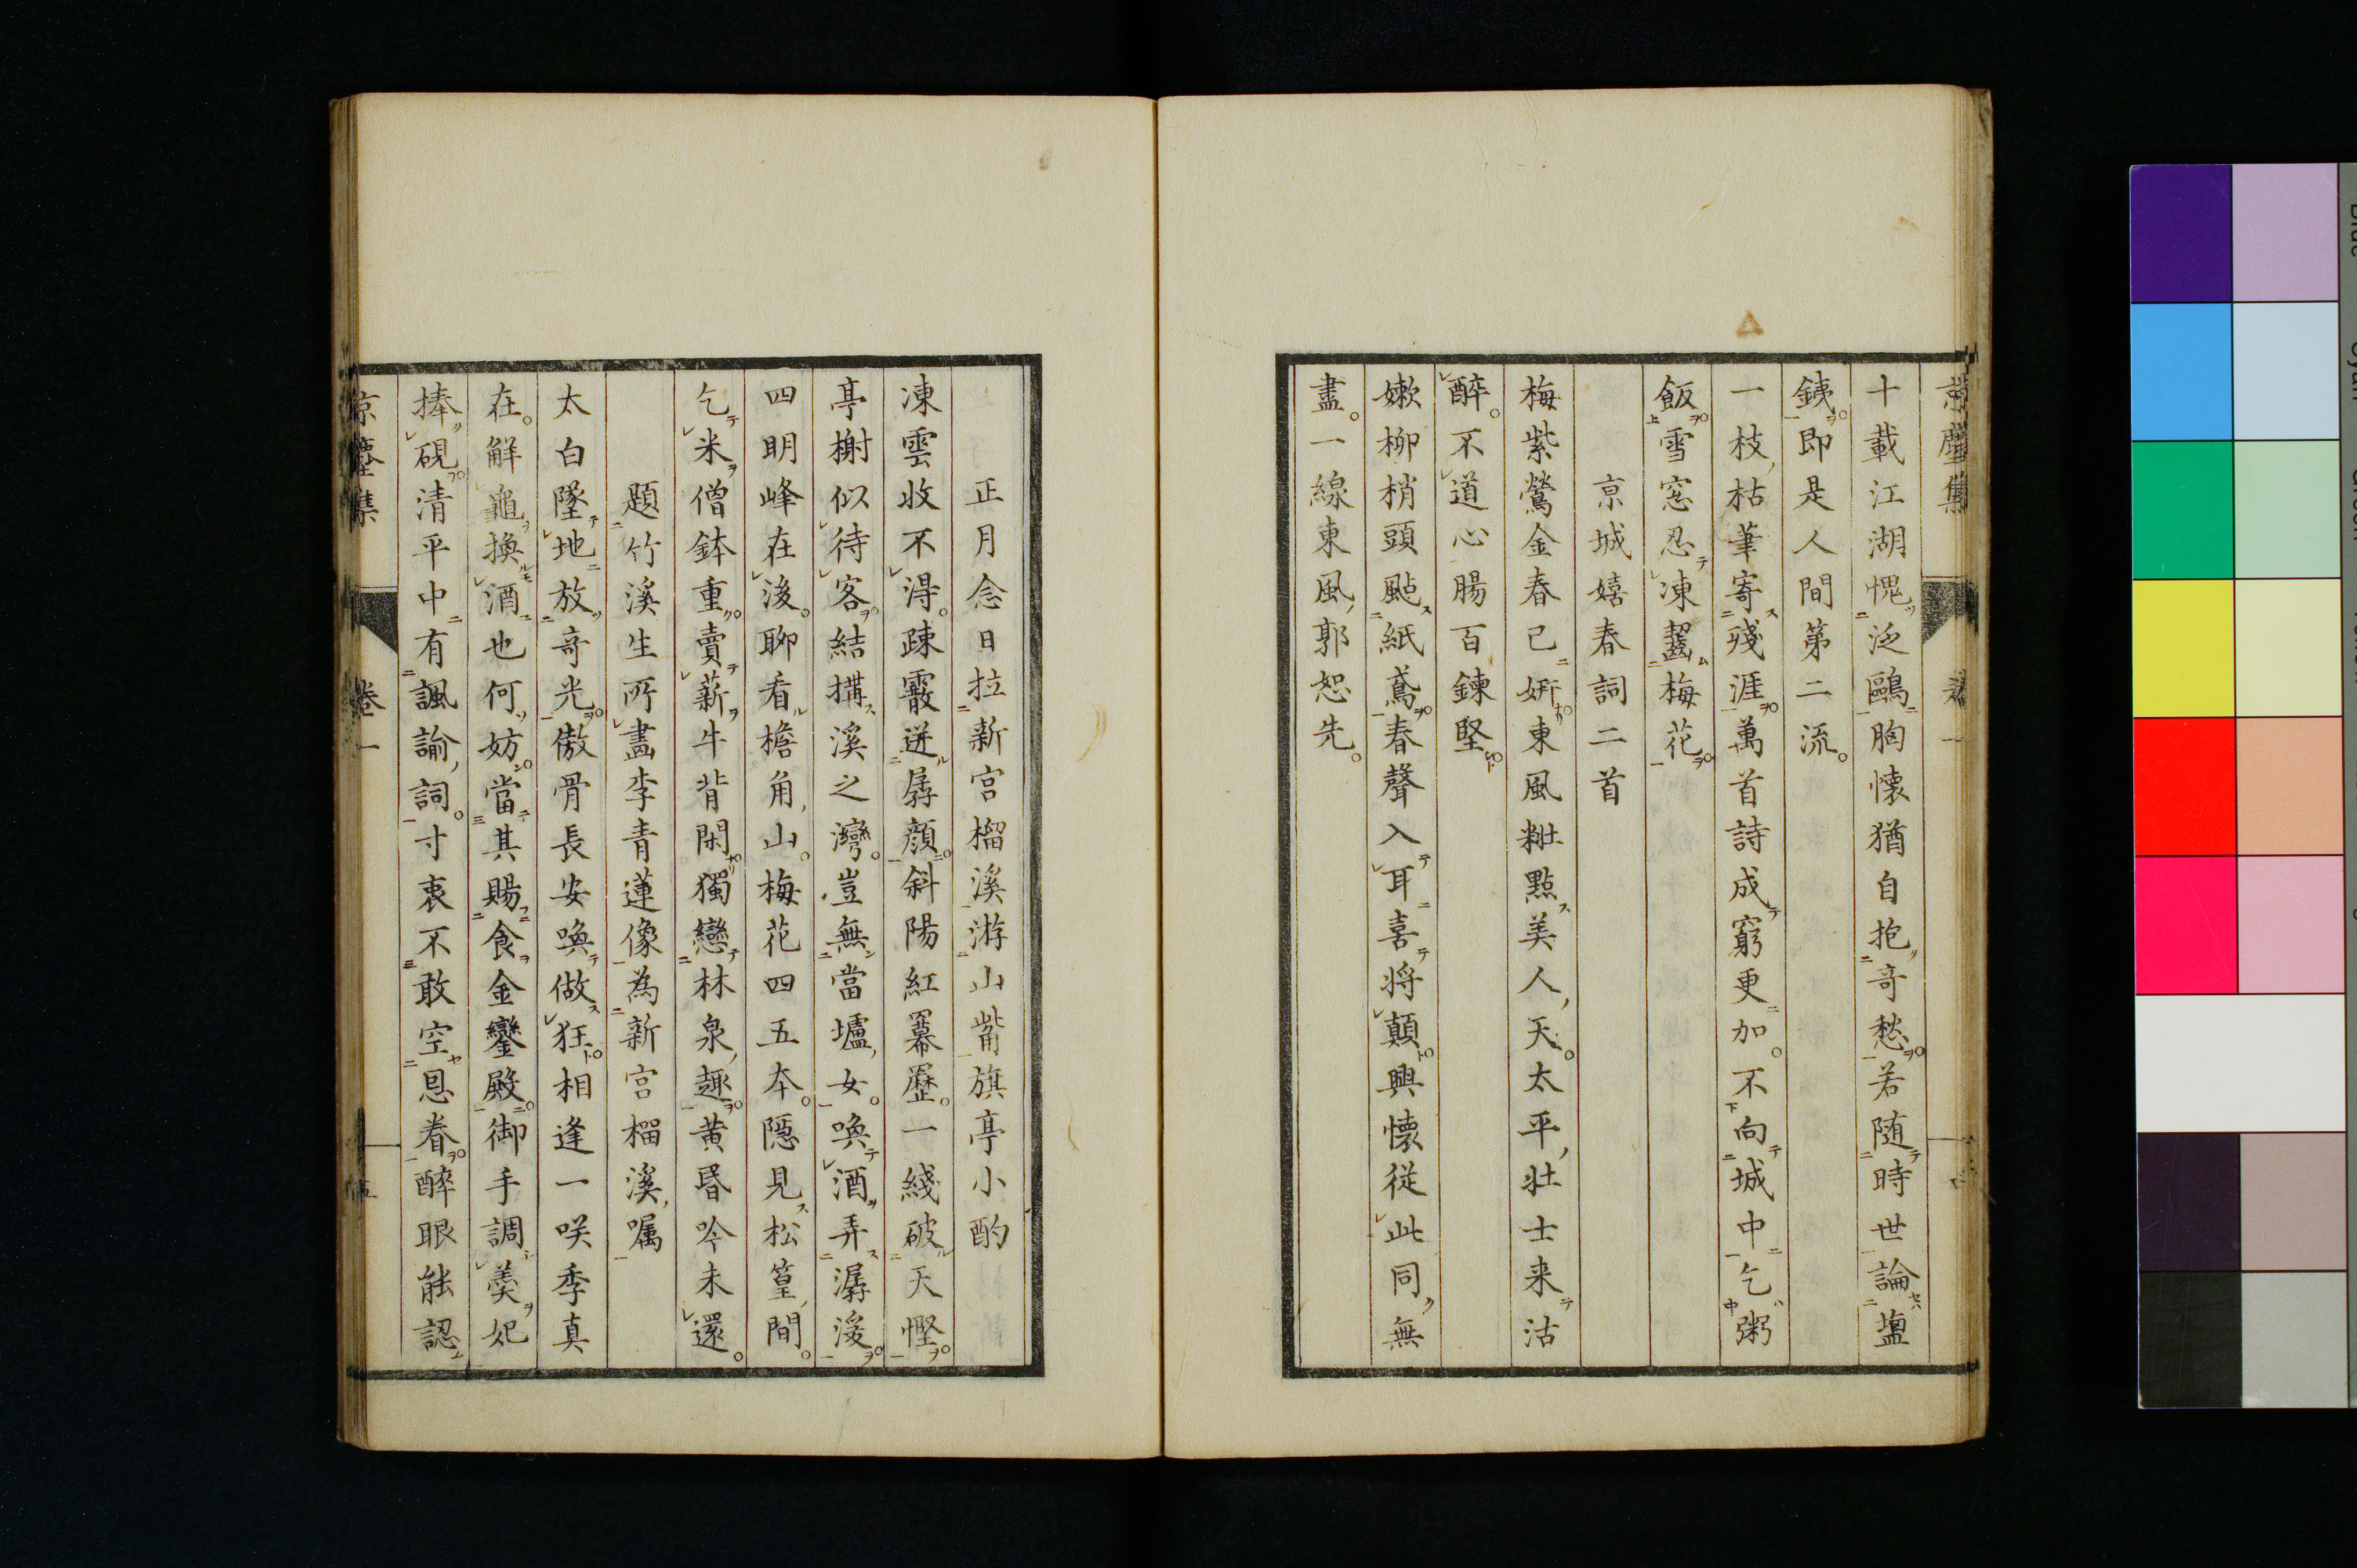 京塵集 卷一
十載江湖愧泛鷗胸懷猶自抱奇愁若隨時世論鹽
鐵即是人間第二流
一枝枯筆寄殘涯萬首詩成窮更加不向城中乞粥
飯雪窓忍凍齧梅花
京城嬉春詞二首
梅紫鶯金春已妍東風粧點美人天太平壮士来沽
醉不道心腸百鍊堅
嫩柳梢頭颭紙鳶春聲入耳喜将顛興懷従此同無
盡一線東風郭恕先
正月念日拉新宮榴溪游山觜旗亭小酌
凍雲收不得疎霰迸孱顔斜陽紅冪歴一綫破天慳
亭榭似待客結搆溪之灣豈無當壚女喚酒弄潺湲
四明峰在後聊看檐角山梅花四五本隠見松篁間
乞米僧鉢重賣薪牛背閑獨戀林泉趣黄昏吟未還
題竹溪生所畫李青蓮像為新宮榴溪嘱
太白墜地放奇光傲骨長安喚做狂相逢一咲季真
在解龜換酒也何妨當其賜食金鑾殿御手調羹妃
捧硯清平中有諷諭詞寸衷不敢空恩眷醉眼能認
京塵集 卷一 五